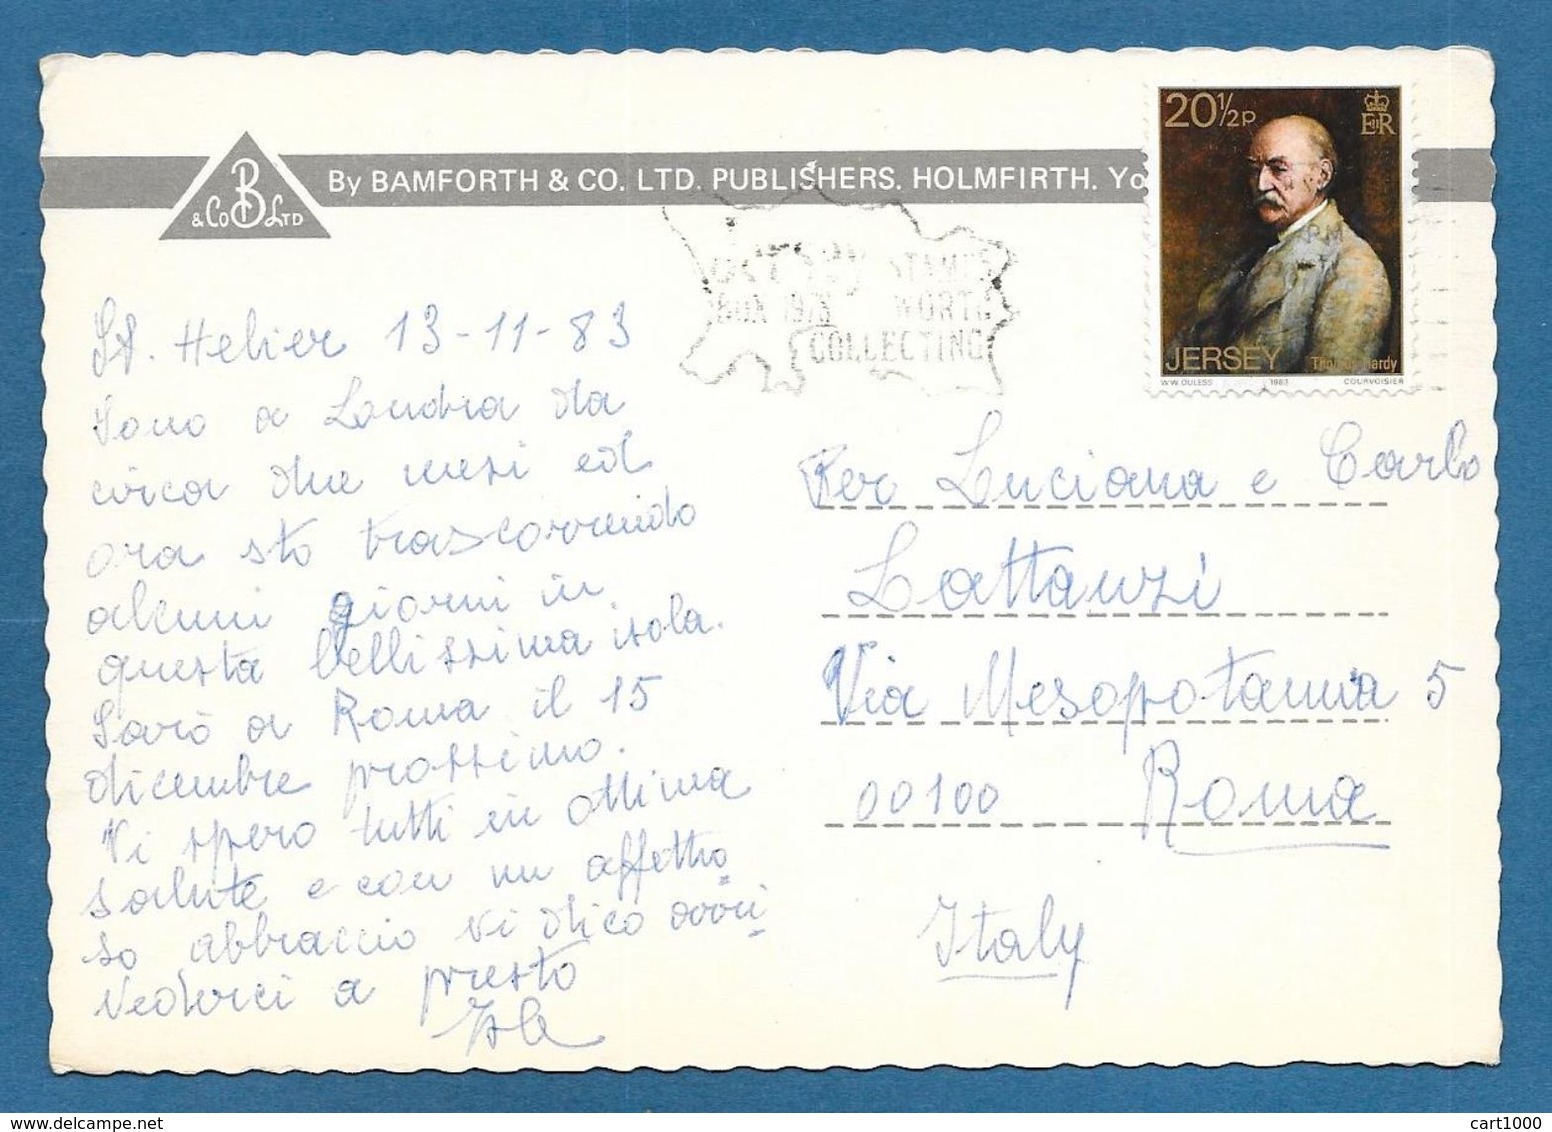 B
& Co LTD
By BAMFORTH & CO. LTD. PUBLISHERS. HOLMFIRTH. Yo
20½p
E II R
JERSEY
Thomas Hardy
W W OULESS 1983 COURVOISIER
P.M
STAMPS
BOX WORTH
COLLECTING
St. Helier 13-11-83
Sono a Londra da
circa due mesi ed
ora sto trascorrendo
alcuni giorni in
questa bellissima isola.
Sarò a Roma il 15
dicembre prossimo.
Vi spero tutti in ottima
salute e con un affettuo
so abbraccio vi dico arri
vederci a presto
Per Luciana e Carlo
Lattanzi
Via Mesopotamia 5
00100 Roma
Italy
cart1000